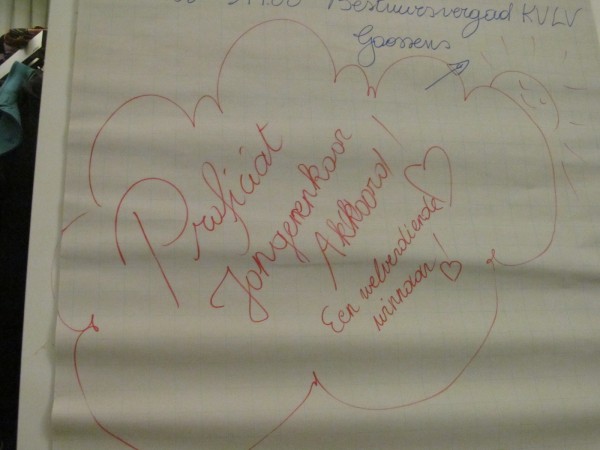 Bestuursvergad KVLV
Goossens
Proficiat
Jongerenkoor
Akkoord!
Een welverdiende
winnaar!